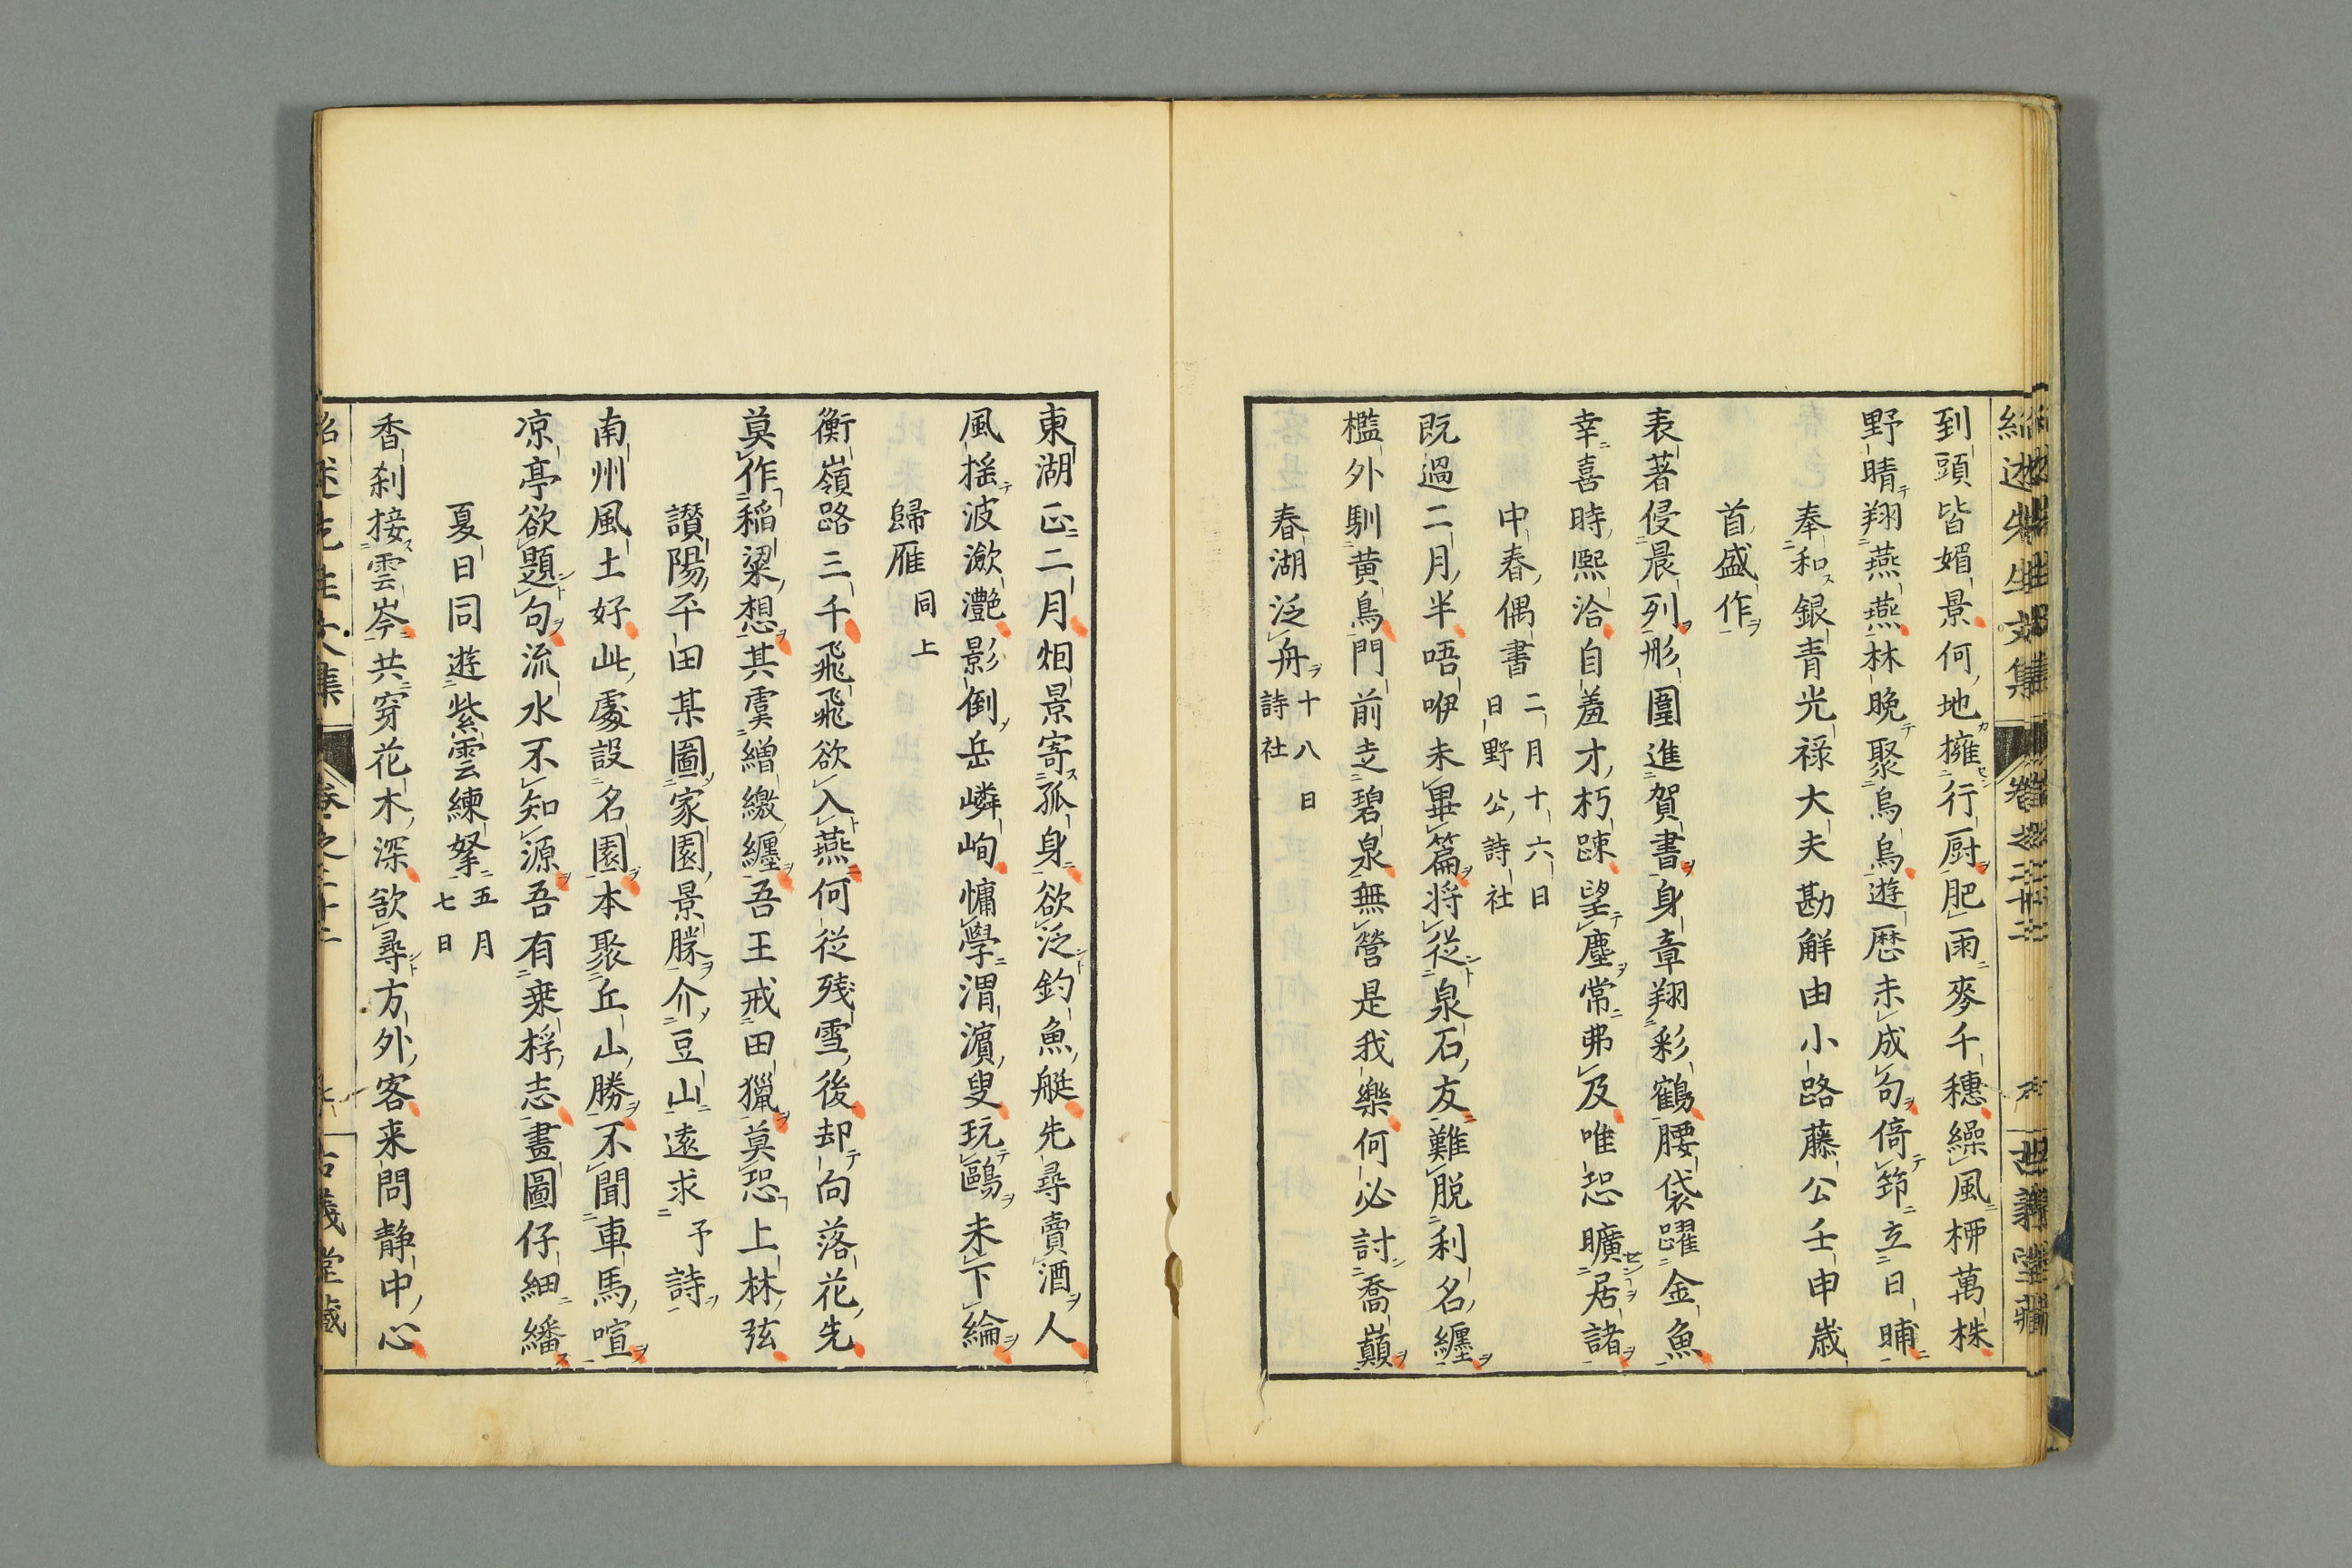 到頭皆媚景何地擁行厨肥雨麥千穗繰風栁萬株
野晴翔燕燕林晩聚烏烏遊歴未成句倚筇立日晡
奉和銀青光禄大夫勘解由小路藤公壬申歳
首盛作
表著侵晨列形圍進賀書身章翔彩鶴腰袋躍金魚
幸喜時熈洽自羞才朽踈望塵常弗及唯恐曠居諸
中春偶書二月十六日
日野公詩社
既過二月半唔咿未畢篇将從泉石友難脱利名纏
檻外馴黄鳥門前走碧泉無營是我樂何必討喬巓
春湖泛舟十八日
詩社
東湖正二月烟景寄孤身欲泛釣魚艇先尋賣酒人
風揺波瀲灧影倒岳嶙峋慵學渭濵叟玩鷗未下綸
歸雁同上
衡嶺路三千飛飛欲入燕何從残雪後却向落花先
莫作稲粱想其虞繒繳纏吾王戒田獵莫恐上林弦
讃陽平田某圖家園景勝介豆山遠求予詩
南州風土好此處設名園本聚丘山勝不聞車馬喧
凉亭欲題句流水不知源吾有乗桴志畫圖仔細繙
夏日同遊紫雲練拏五月
七日
香刹接雲岑共穿花木深欲尋方外客来問静中心